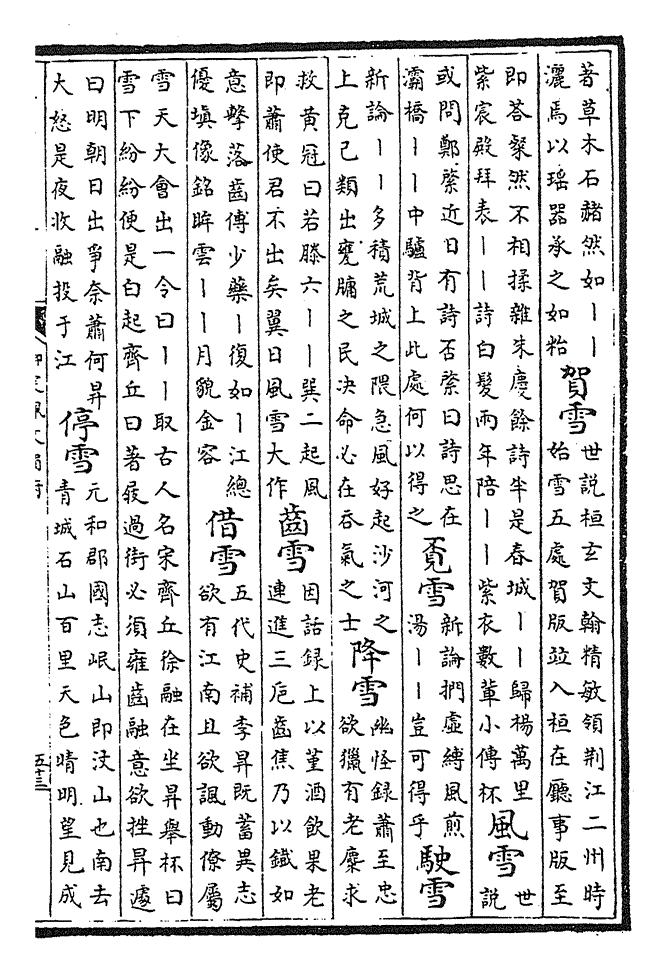 著草木石赭然如丨丨
灑焉以瑶器承之如粘
賀雪
世説桓玄文翰精敏領荆江二州時
始雪五處賀版竝入桓在廳事版至
即荅粲然不相揉雜朱慶餘詩半是春城丨丨歸楊萬里
紫宸殿拜表丨丨詩白髮兩年陪丨丨紫衣數輩小傳杯
風雪
世
説
或問鄭綮近日有詩否綮曰詩思在
灞橋丨丨中驢背上此處何以得之
覔雪
新論捫虛縛風煎
湯丨丨豈可得乎
駛雪
新論丨丨多積荒城之隈急風好起沙河之
上克己類出甕牖之民決命必在吞氣之士
降雪
幽怪録蕭至忠
欲獵有老麋求
救黄冠曰若滕六丨丨巽二起風
即蕭使君不出矣翼日風雪大作
齒雪
因話録上以堇酒飲果老
連進三巵齒焦乃以鐵如
意擊落齒傅少藥丨復如丨江總
優填像銘眸雲丨丨月貌金容
借雪
五代史補李昇既蓄異志
欲有江南且欲諷動僚屬
雪天大會出一令曰丨丨取古人名宋齊丘徐融在坐昇舉杯曰
雪下紛紛便是白起齊丘曰著屐過街必須雍齒融意欲挫昇遽
曰明朝日出爭奈蕭何昇
大怒是夜收融投于江
停雪
元和郡國志岷山即汶山也南去
青城石山百里天色晴明望見成